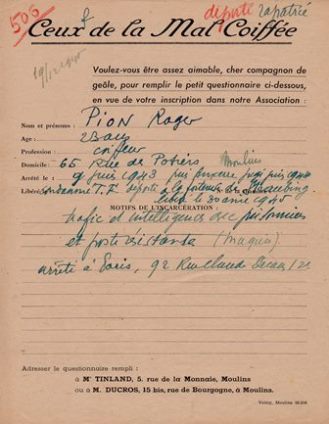 505 déporté rapatrié
Ceux de la Mal Coiffée
19/12/1945
Voulez-vous être assez aimable, cher compagnon de
geôle, pour remplir le petit questionnaire ci-dessous,
en vue de votre inscription dans notre Association :
Nom et prénoms : Pion Roger
Age : 23 ans
Profession : coiffeur
Domicile : 65 Rue de Moulins
Arrêté le : 9 juin 1943 1943
Libéré condamné T.F déporté à la forteresse de
le 30 avril 1945
MOTIFS DE L'INCARCÉRATION :
trafic et intelligences avec prisonniers
et (maquis)
arrêté à Paris, 92 Rue Claude
Adresser le questionnaire rempli :
à Mᵉ TINLAND, 5, rue de la Monnaie, Moulins
ou à M. DUCROS, 15 bis, rue de Bourgogne, à Moulins.
Moulins